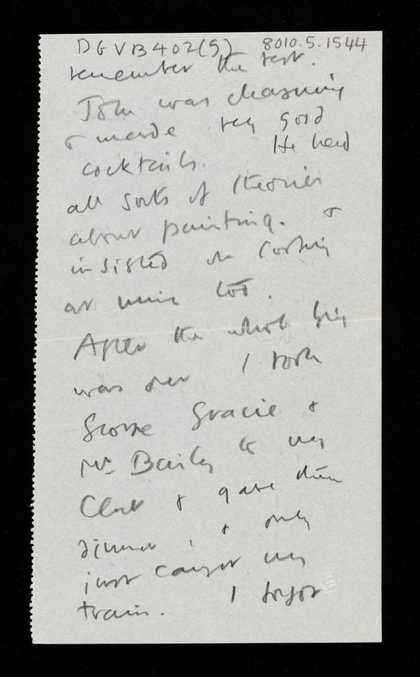 DGVB402(5) 8010.5.1544
remember the rest.
John was charming
& made very good
cocktails. He had
all sorts of theories
about painting. &
insisted on looking
at mine too.
After the whole thing
was over I took
George Gracie &
Mr Bailey to my
Club & gave them
dinner, & only
just caught my
train. I forgot